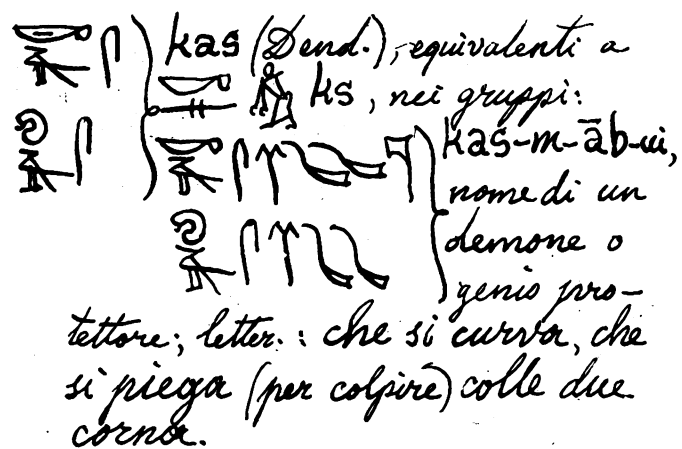 kas (Dend.), equivalenti a
ks, nei gruppi:
kas-m-āb-ui,
nome di un
demone o
genio pro-
tettore; letter.: che si curva, che
si piega (per colpire) colle due
corna.